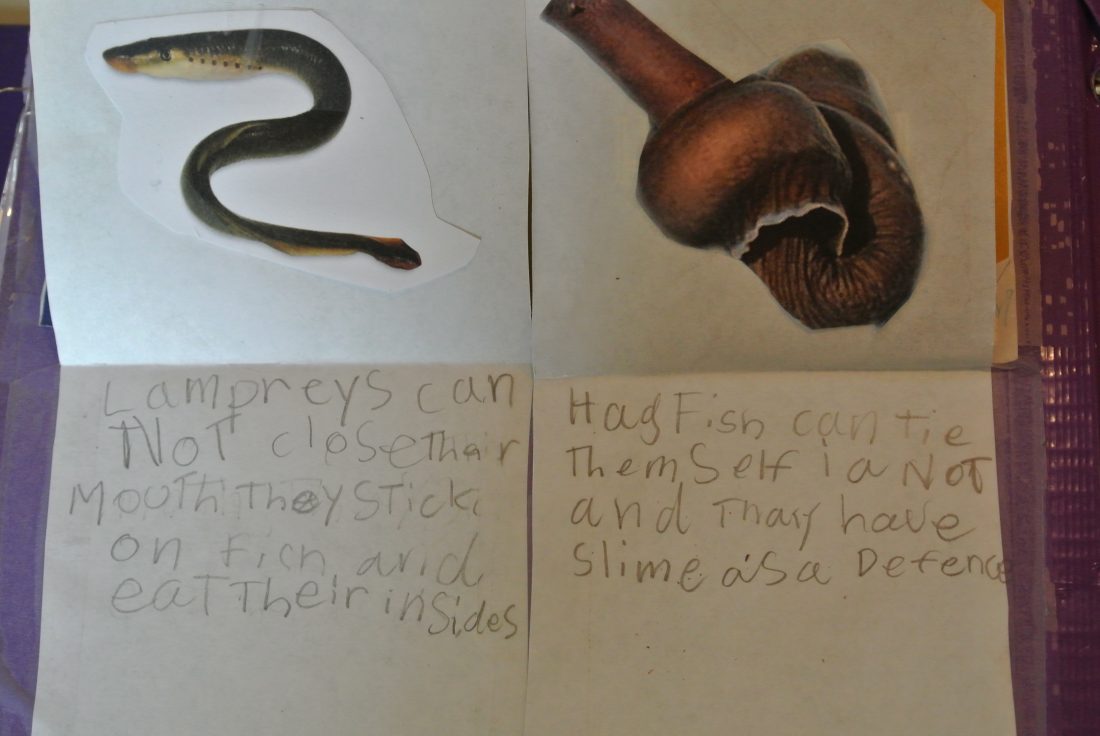 Lampreys can
Not closeThair
Mouth They Stick
on Fich and
eat Their insides
Hag Fish can tie
ThemSelf i a Not
and Thay have
Slime as a Defence